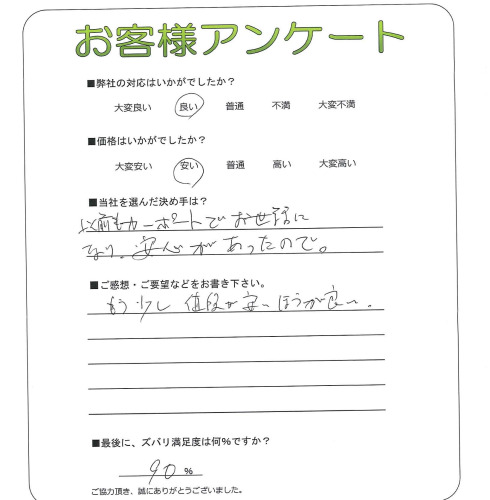 お客様アンケート
■弊社の対応はいかがでしたか？
大変良い 良い 普通 不満 大変不満
■価格はいかがでしたか？
大変安い 安い 普通 高い 大変高い
■当社を選んだ決め手は？
以前もカーポートでお世話に
なり、安心があったので。
■ご感想・ご要望などをお書き下さい。
もう少し値段が安いほうが良い。
■最後に、ズバリ満足度は何%ですか？
90 %
ご協力頂き、誠にありがとうございました。